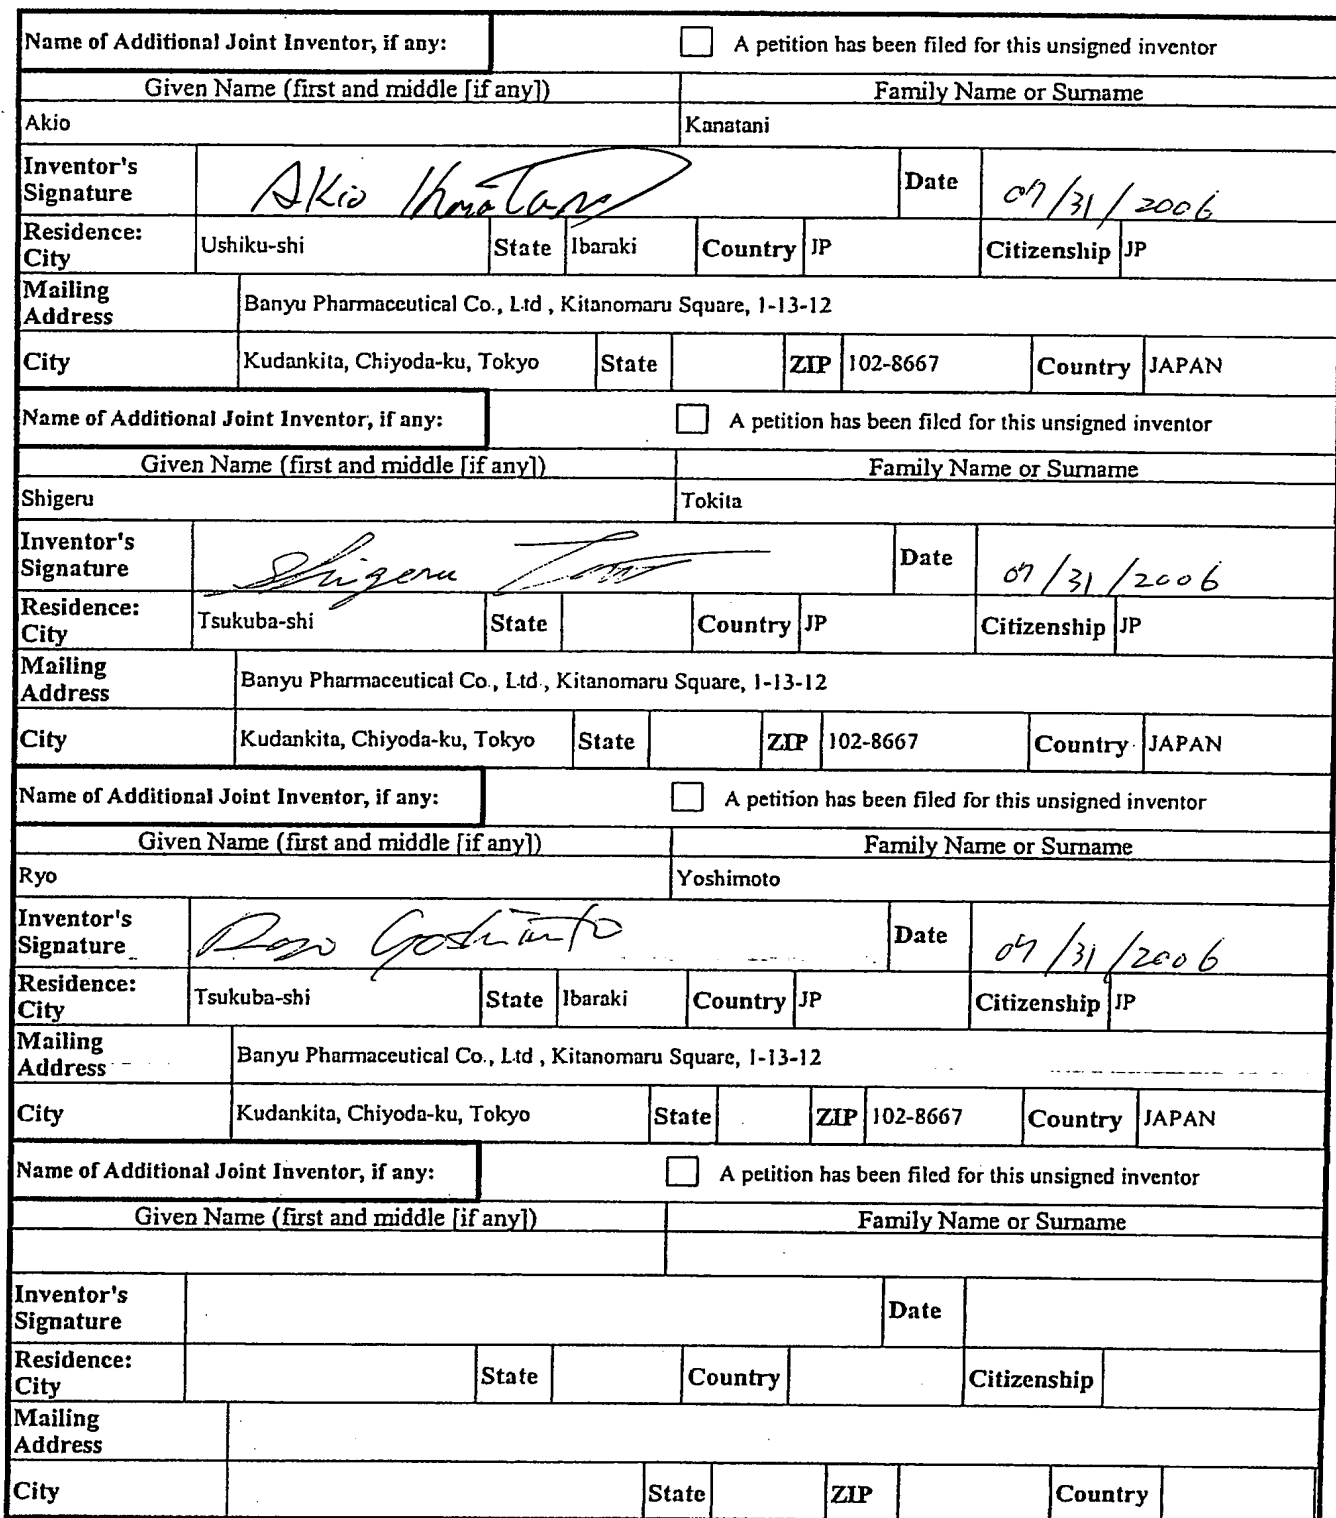 Name of Additional Joint Inventor, if any: A petition has been filed for this unsigned inventor
Given Name (first and middle [if any]) Family Name or Surname
Akio Kanatani
Inventor's Signature Akio Kanatani Date 07/31/2006
Residence: City Ushiku-shi State Ibaraki Country JP Citizenship JP
Mailing Address Banyu Pharmaceutical Co., Ltd , Kitanomaru Square, 1-13-12
City Kudankita, Chiyoda-ku, Tokyo State ZIP 102-8667 Country JAPAN
Name of Additional Joint Inventor, if any: A petition has been filed for this unsigned inventor
Given Name (first and middle [if any]) Family Name or Surname
Shigeru Tokita
Inventor's Signature Shigeru Tokita Date 07/31/2006
Residence: City Tsukuba-shi State Country JP Citizenship JP
Mailing Address Banyu Pharmaceutical Co., Ltd., Kitanomaru Square, 1-13-12
City Kudankita, Chiyoda-ku, Tokyo State ZIP 102-8667 Country JAPAN
Name of Additional Joint Inventor, if any: A petition has been filed for this unsigned inventor
Given Name (first and middle [if any]) Family Name or Surname
Ryo Yoshimoto
Inventor's Signature Ryo Yoshimoto Date 07/31/2006
Residence: City Tsukuba-shi State Ibaraki Country JP Citizenship JP
Mailing Address Banyu Pharmaceutical Co., Ltd , Kitanomaru Square, 1-13-12
City Kudankita, Chiyoda-ku, Tokyo State ZIP 102-8667 Country JAPAN
Name of Additional Joint Inventor, if any: A petition has been filed for this unsigned inventor
Given Name (first and middle [if any]) Family Name or Surname
Inventor's Signature Date
Residence: City State Country Citizenship
Mailing Address
City State ZIP Country